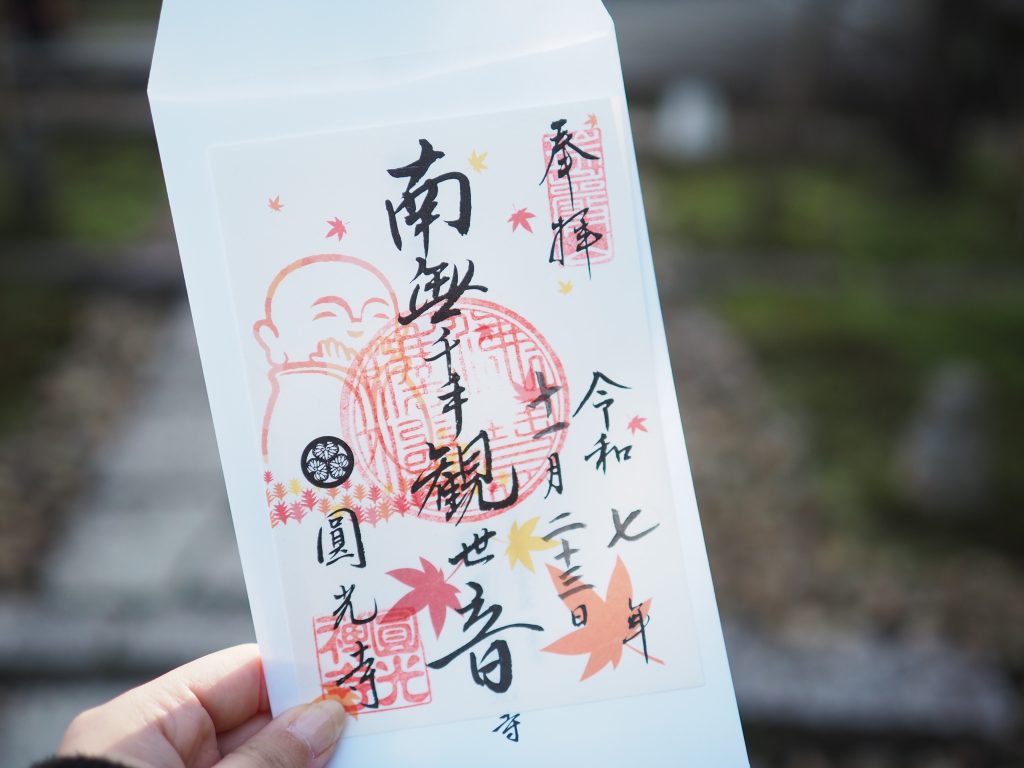 奉拝
令和七年
十一月二十三日
南無千手観世音
圓光寺
圓光
禅寺